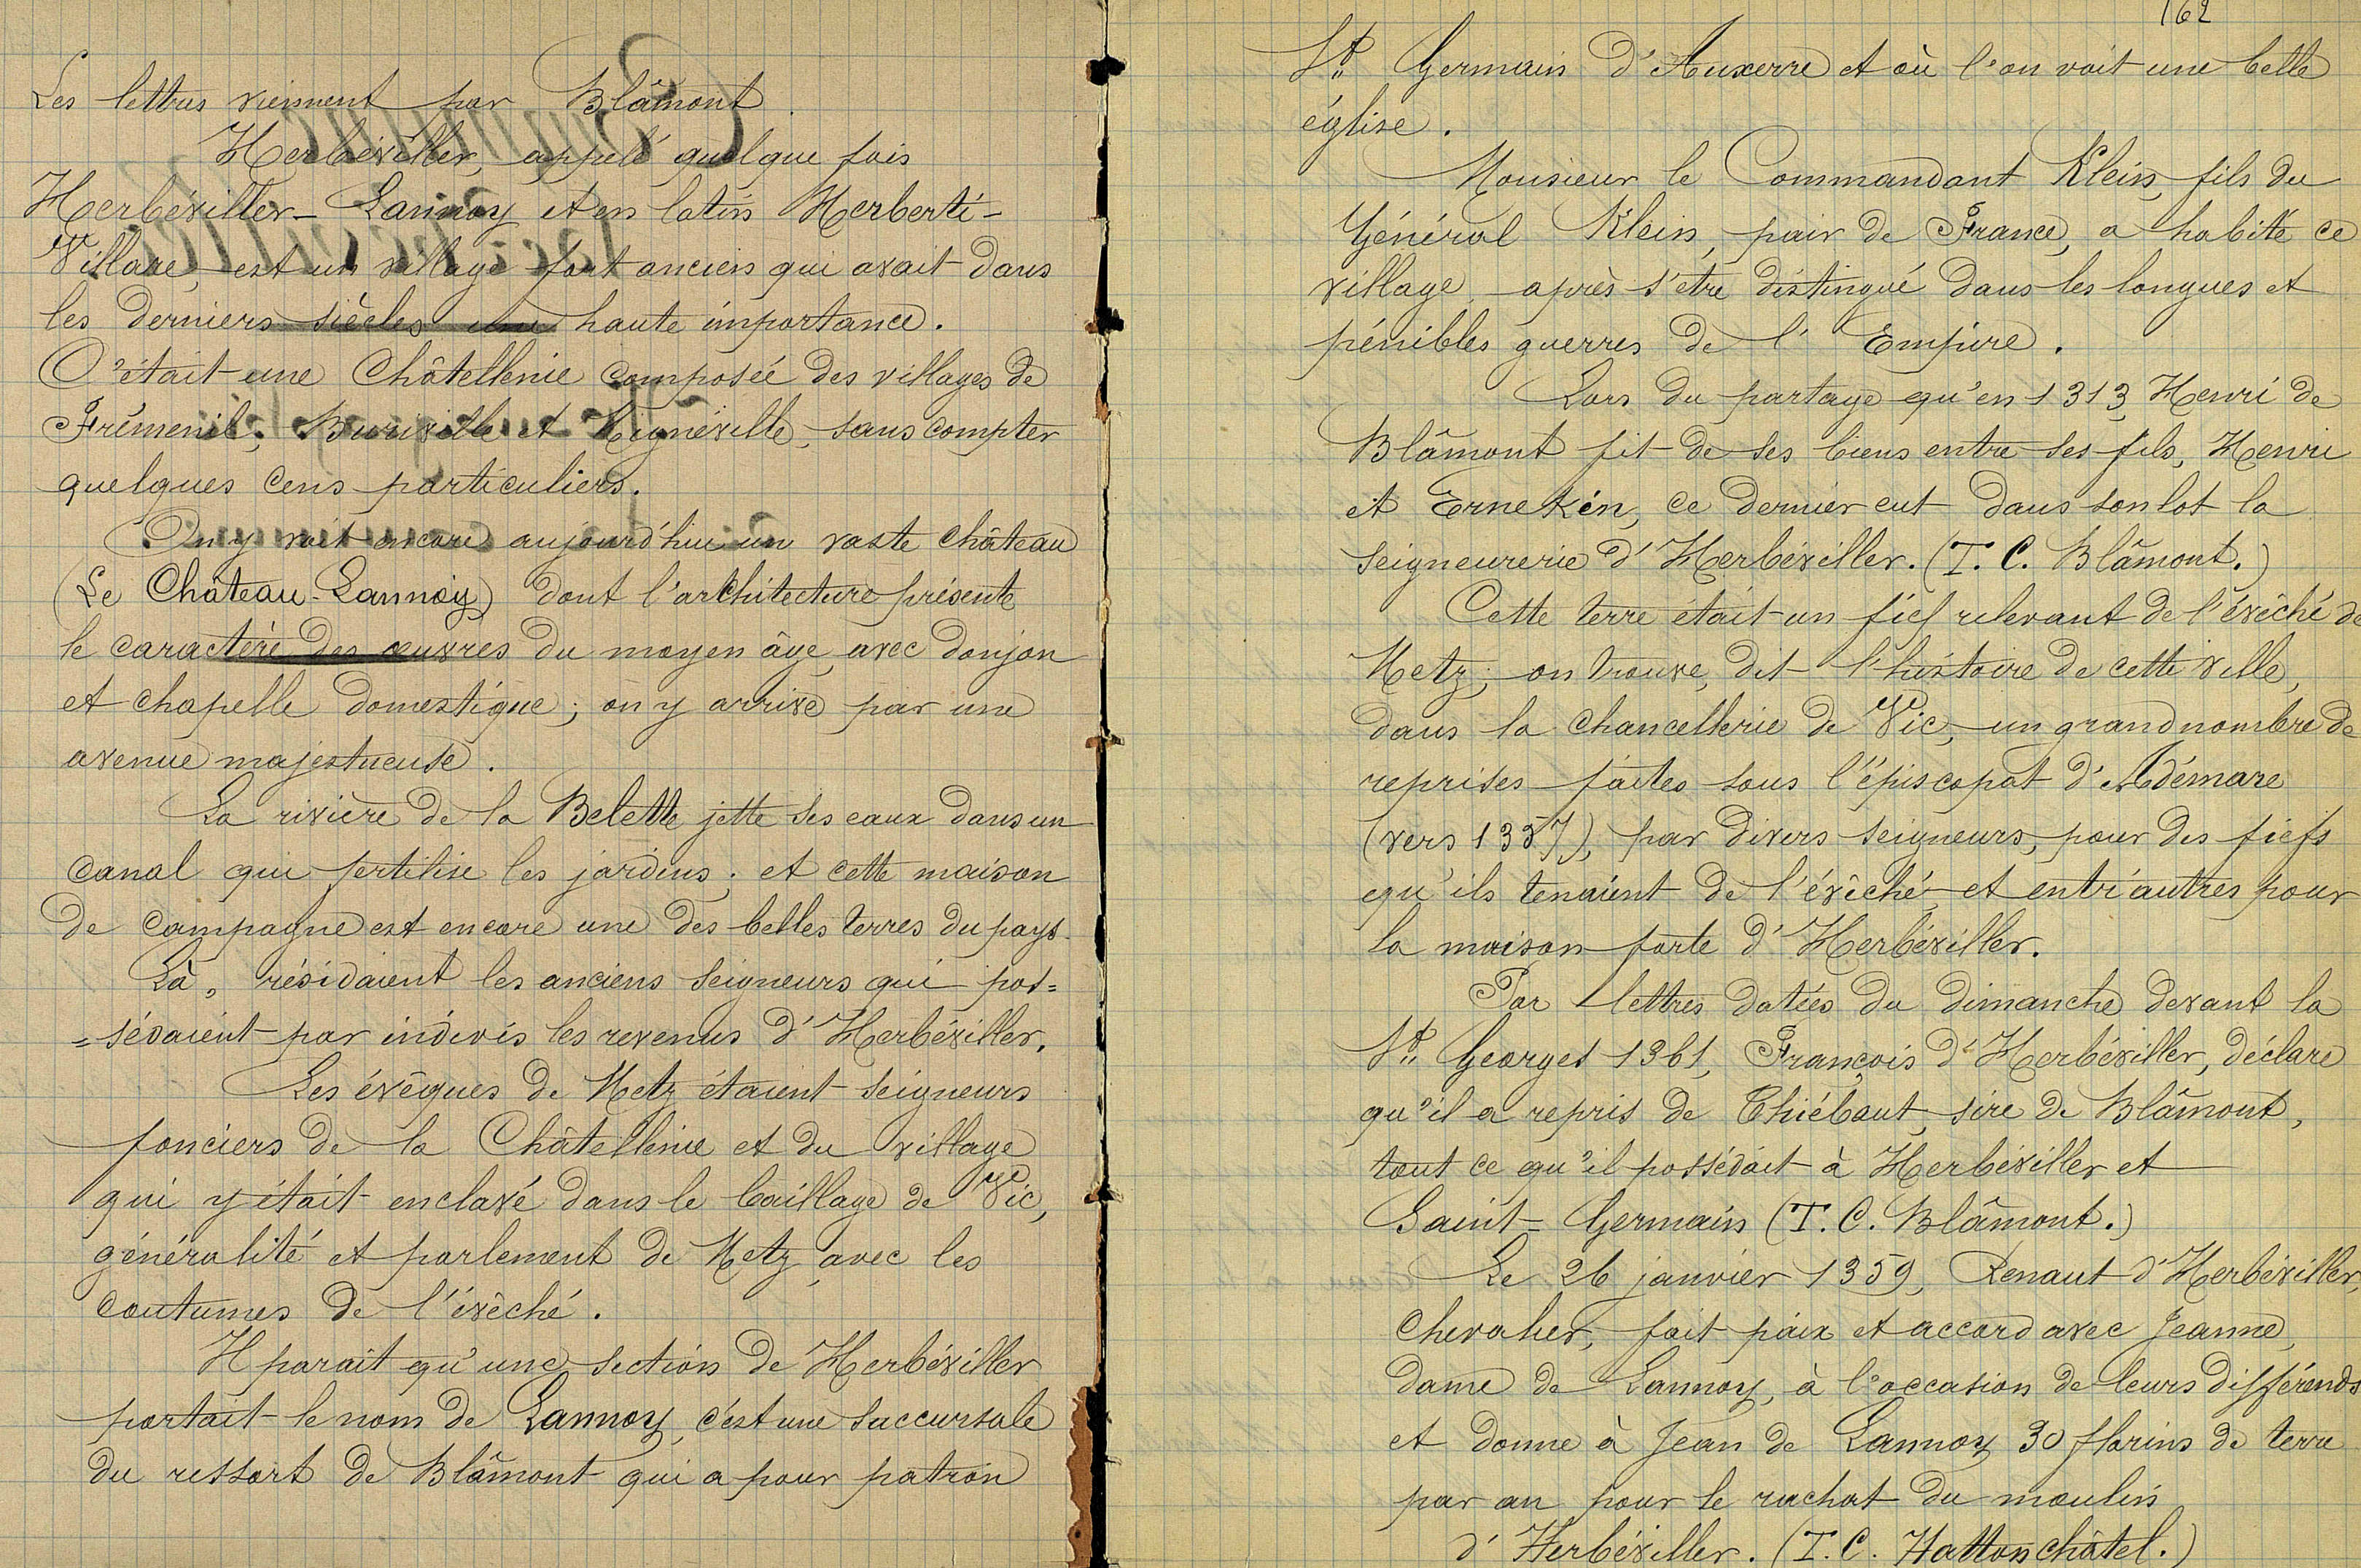 Les lettres viennent par Blâmont
Herbéviller, appelé quelque fois
Herbéviller-Lannoy et en latin Herberti-
Villare, est un village fort ancien qui avait dans
les derniers siècles une haute importance.
C'était une Châtellenie composée des villages de
Frémenil, Buriville et Migneville, sans compter
quelques cens particuliers.
On y voit encore aujourd'hui un vaste château
(Le Château-Lannoy) dont l'architecture présente
le caractère des œuvres du moyen âge avec donjon
et chapelle domestique; on y arrive par une
avenue majestueuse.
La rivière de la Belette jette ses eaux dans un
canal qui fertilise les jardins; et cette maison
de campagne est encore une des belles terres du pays.
Là, résidaient les anciens seigneurs qui pos=
=sédaient par indivis les revenus d'Herbéviller.
Les évêques de Metz étaient seigneurs
fonciers de la Châtellenie et du village
qui y était enclavé dans le baillage de Vic,
généralité et parlement de Metz avec les
coutumes de l'évêché.
Il parait qu'une section de Herbéviller
portait le nom de Lannoy, c'est une succursale
du ressort de Blâmont qui a pour patron
162
St Germain d'Auxerre et où l'on voit une belle
église.
Monsieur le Commandant Klein, fils du
Général Klein, pair de France, a habité ce
village après s'être distingué dans les longues et
pénibles guerres de l'Empire.
Lors du partage qu'en 1313, Henri de
Blâmont fit de ses biens entre ses fils, Henri
et Ernekin, ce dernier eut dans son lot la
seigneurerie d'Herbéviller. (T. C. Blâmont.)
Cette terre était un fief relevant de l'évêché de
Metz; on trouve, dit l'histoire de cette ville,
dans la chancellerie de Vic, un grand nombre de
reprises faites sous l'épiscopat d'Adémare
(vers 1337), par divers seigneurs, pour des fiefs
qu'ils tenaient de l'évêché et entr'autres pour
la maison forte d'Herbéviller.
Par lettres datées du dimanche devant la
St Georges 1361, François d'Herbéviller, déclare
qu'il a repris de Thiébaut, sire de Blâmont,
tout ce qu'il possédait à Herbéviller et
Saint-Germain (T. C. Blâmont.)
Le 26 janvier 1359, Renaut d'Herbéviller,
chevalier, fait paix et accord avec Jeanne,
dame de Lannoy, à l'occasion de leurs différends
et donne à Jean de Lannoy 30 florins de terre
par an pour le rachat du moulin
d'Herbéviller. (T. C. Hattonchâtel.)